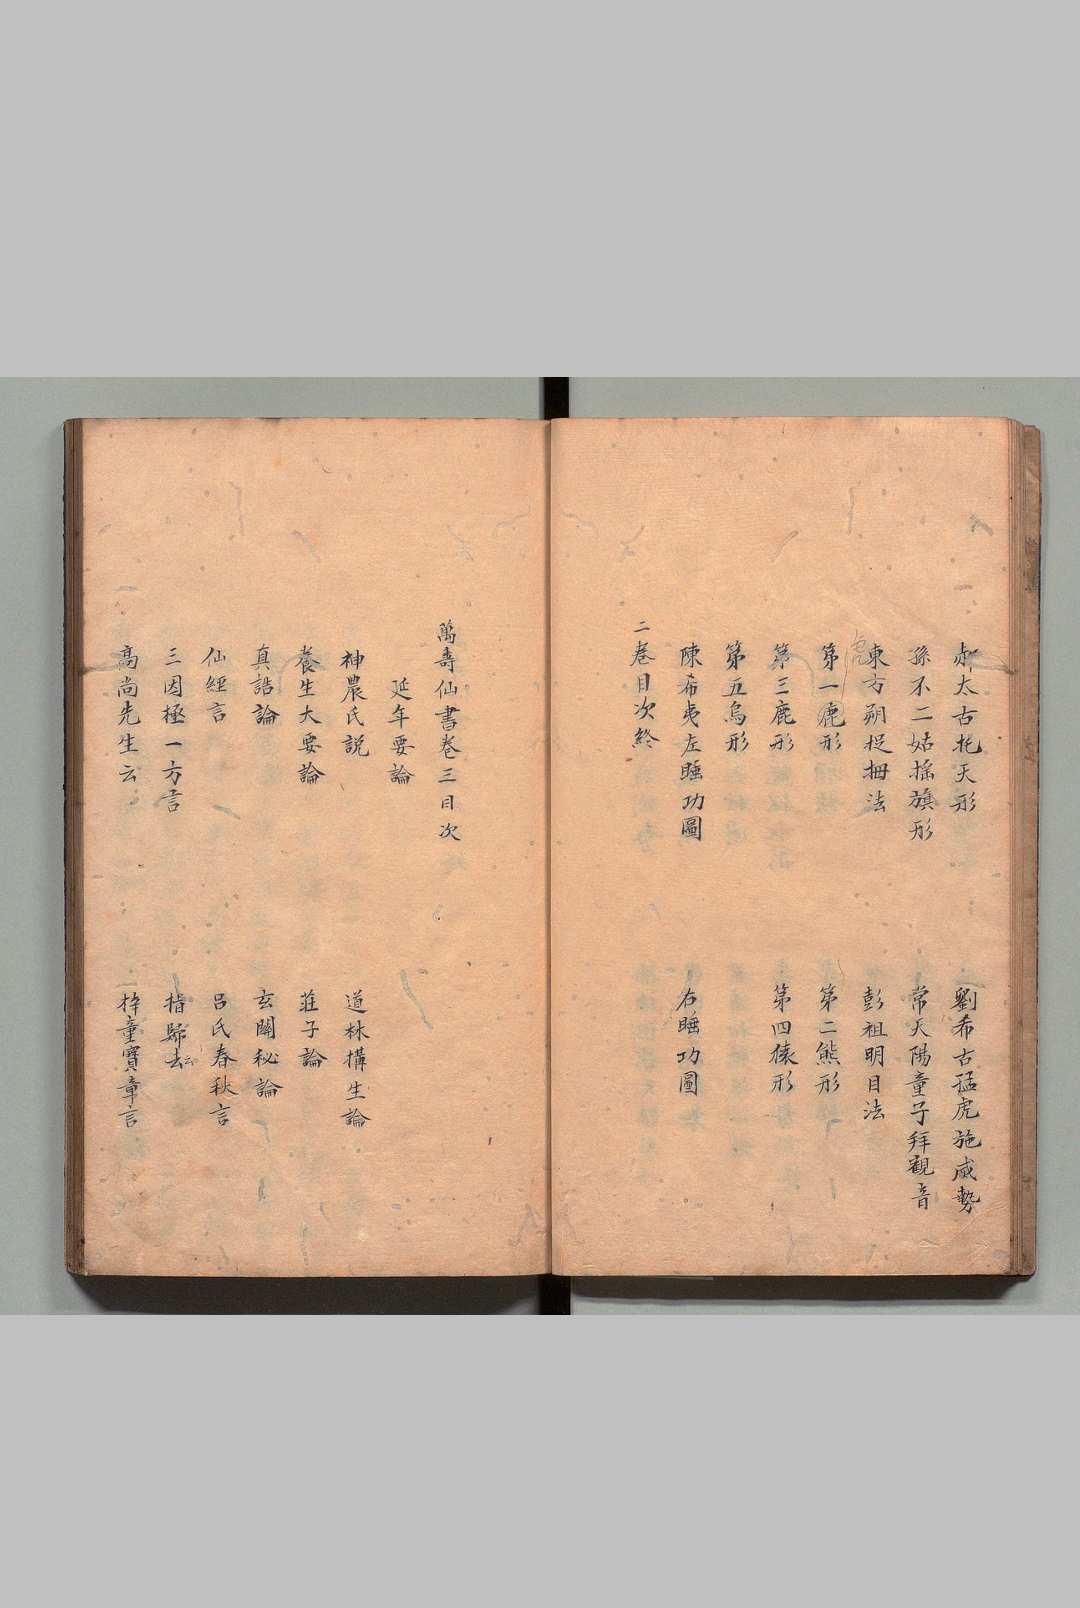 郝太古托天形
劉希古猛虎施威勢
孫不二姑搖旗形
常天陽童子拜觀音
東方朔捉拇法
彭祖明目法
虎
第一鹿形
第二熊形
第三鹿形
第四猿形
第五鳥形
陳希夷左睡功圖
右睡功圖
二卷目次終
萬壽仙書卷三目次
延年要論
神農氏説
道林攝生論
養生大要論
莊子論
真誥論
玄關秘論
仙經言
呂氏春秋言
三因極一方言
指歸去云
高尚先生云
梓童寶章言